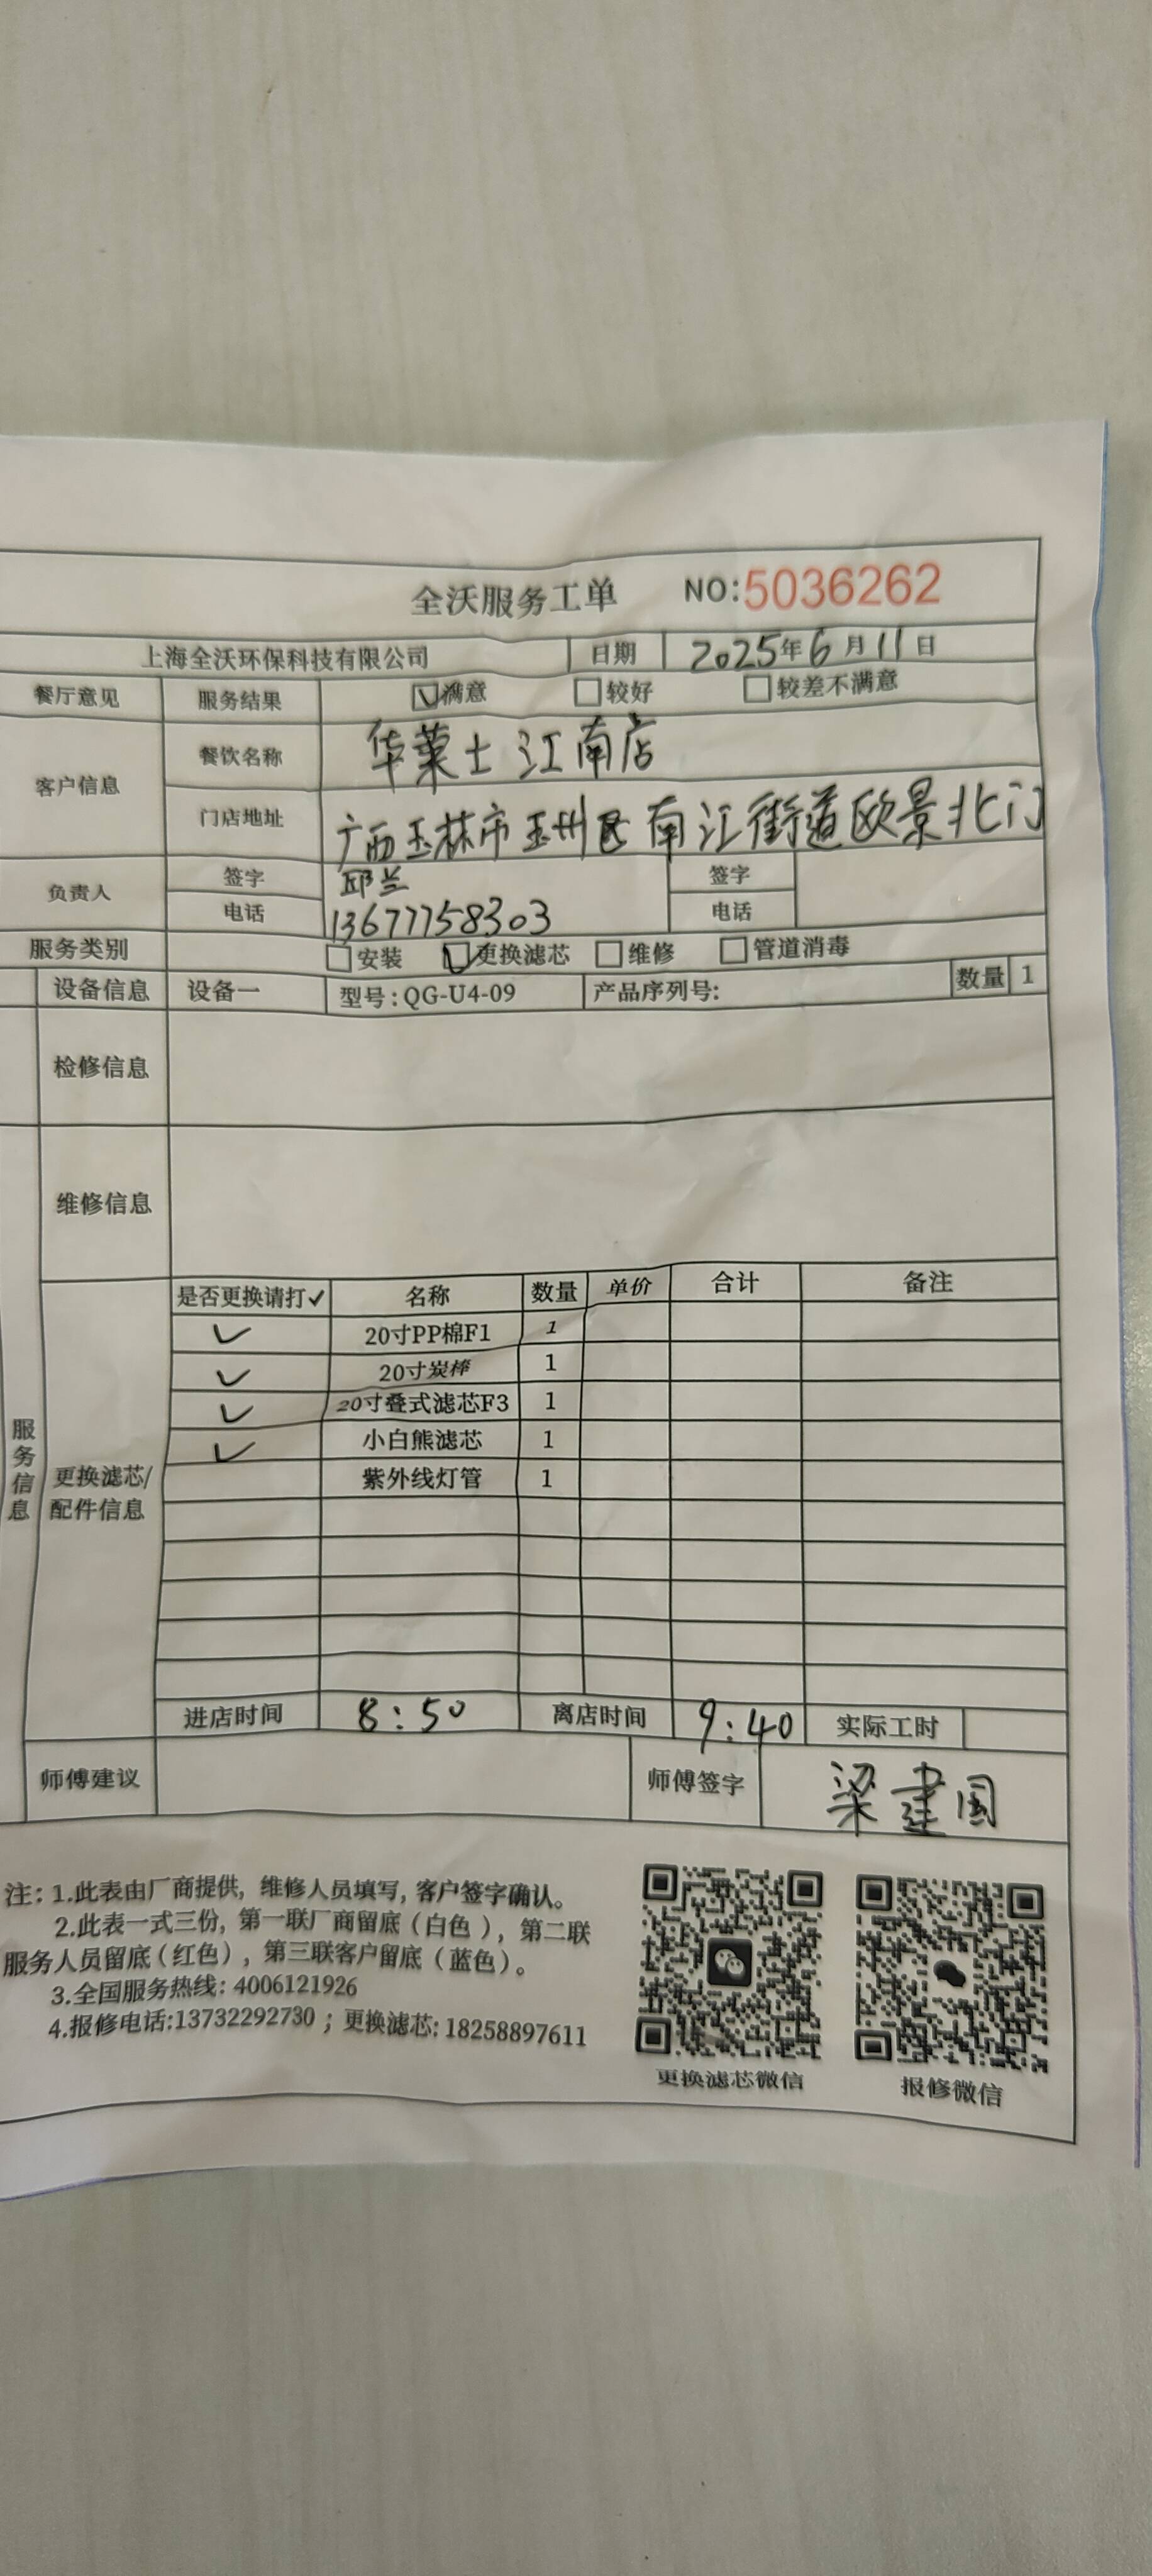 全沃服务工单 NO:5036262
上海全沃环保科技有限公司 日期 2025年6月11日
餐厅意见 服务结果 ☑满意 □较好 □较差不满意
客户信息 餐饮名称 华莱士江南店
门店地址 广西玉林市玉州区南江街道欧景北门
负责人 签字 邱兰 签字
电话 13677758303 电话
服务类别 □安装 ☑更换滤芯 □维修 □管道消毒
设备信息 设备一 型号:QG-U4-09 产品序列号: 数量 1
检修信息
维修信息
服务信息
更换滤芯/配件信息
是否更换请打✓ 名称 数量 单价 合计 备注
✓ 20寸PP棉F1 1
✓ 20寸炭棒 1
✓ 20寸叠式滤芯F3 1
✓ 小白熊滤芯 1
紫外线灯管 1
进店时间 8:50 离店时间 9:40 实际工时
师傅建议 师傅签字 梁建国
注: 1.此表由厂商提供, 维修人员填写, 客户签字确认。
2.此表一式三份, 第一联厂商留底(白色), 第二联
服务人员留底(红色), 第三联客户留底(蓝色)。
3.全国服务热线: 4006121926
4.报修电话:13732292730 ; 更换滤芯: 18258897611
更换滤芯微信 报修微信